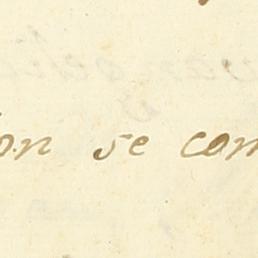 on se com